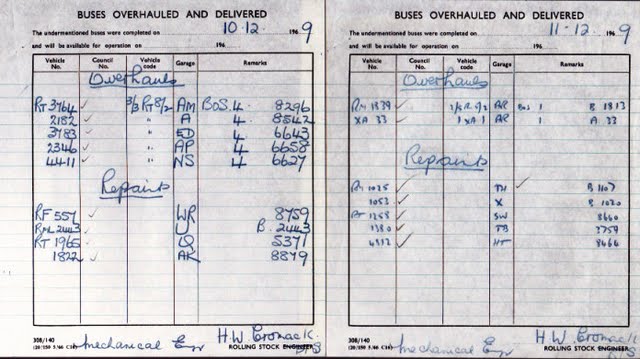 BUSES OVERHAULED AND DELIVERED
The undermentioned buses were completed on 10-12. 1969
and will be available for operation on 196
Vehicle No. Council No. Vehicle code Garage Remarks
Overhauls
RT 3764 ✓ 3/3 RT 8/2 AM BoS. 4. 8296
2182 ✓ " A 4. 8542
3783 ✓ " ED 4 6643
2346 ✓ " AP 4 6658
4411 ✓ " NS 4 6627
Repairs
RF 557 ✓ WR 8759
RML 2443 ✓ U B. 2443
RT 1965 ✓ Q 5371
1822 ✓ AK 8879
308/140
Mechanical Eng H.W. Cromack.
ROLLING STOCK ENGINEER
BUSES OVERHAULED AND DELIVERED
The undermentioned buses were completed on 11-12. 1969
and will be available for operation on 196
Vehicle No. Council No. Vehicle code Garage Remarks
Overhauls
RM 1839 ✓ AR Bos 1 B 1813
XA 33 ✓ 1 XA 1 AR 1 A 33
Repairs
RM 1025 ✓ TH ✓ B 1107
1053 ✓ X B 1020
RT 1258 ✓ SW 8660
1380 ✓ TB 3759
4812 ✓ HT 8466
308/140
Mechanical Eng H.W. Cromack
ROLLING STOCK ENGINEER